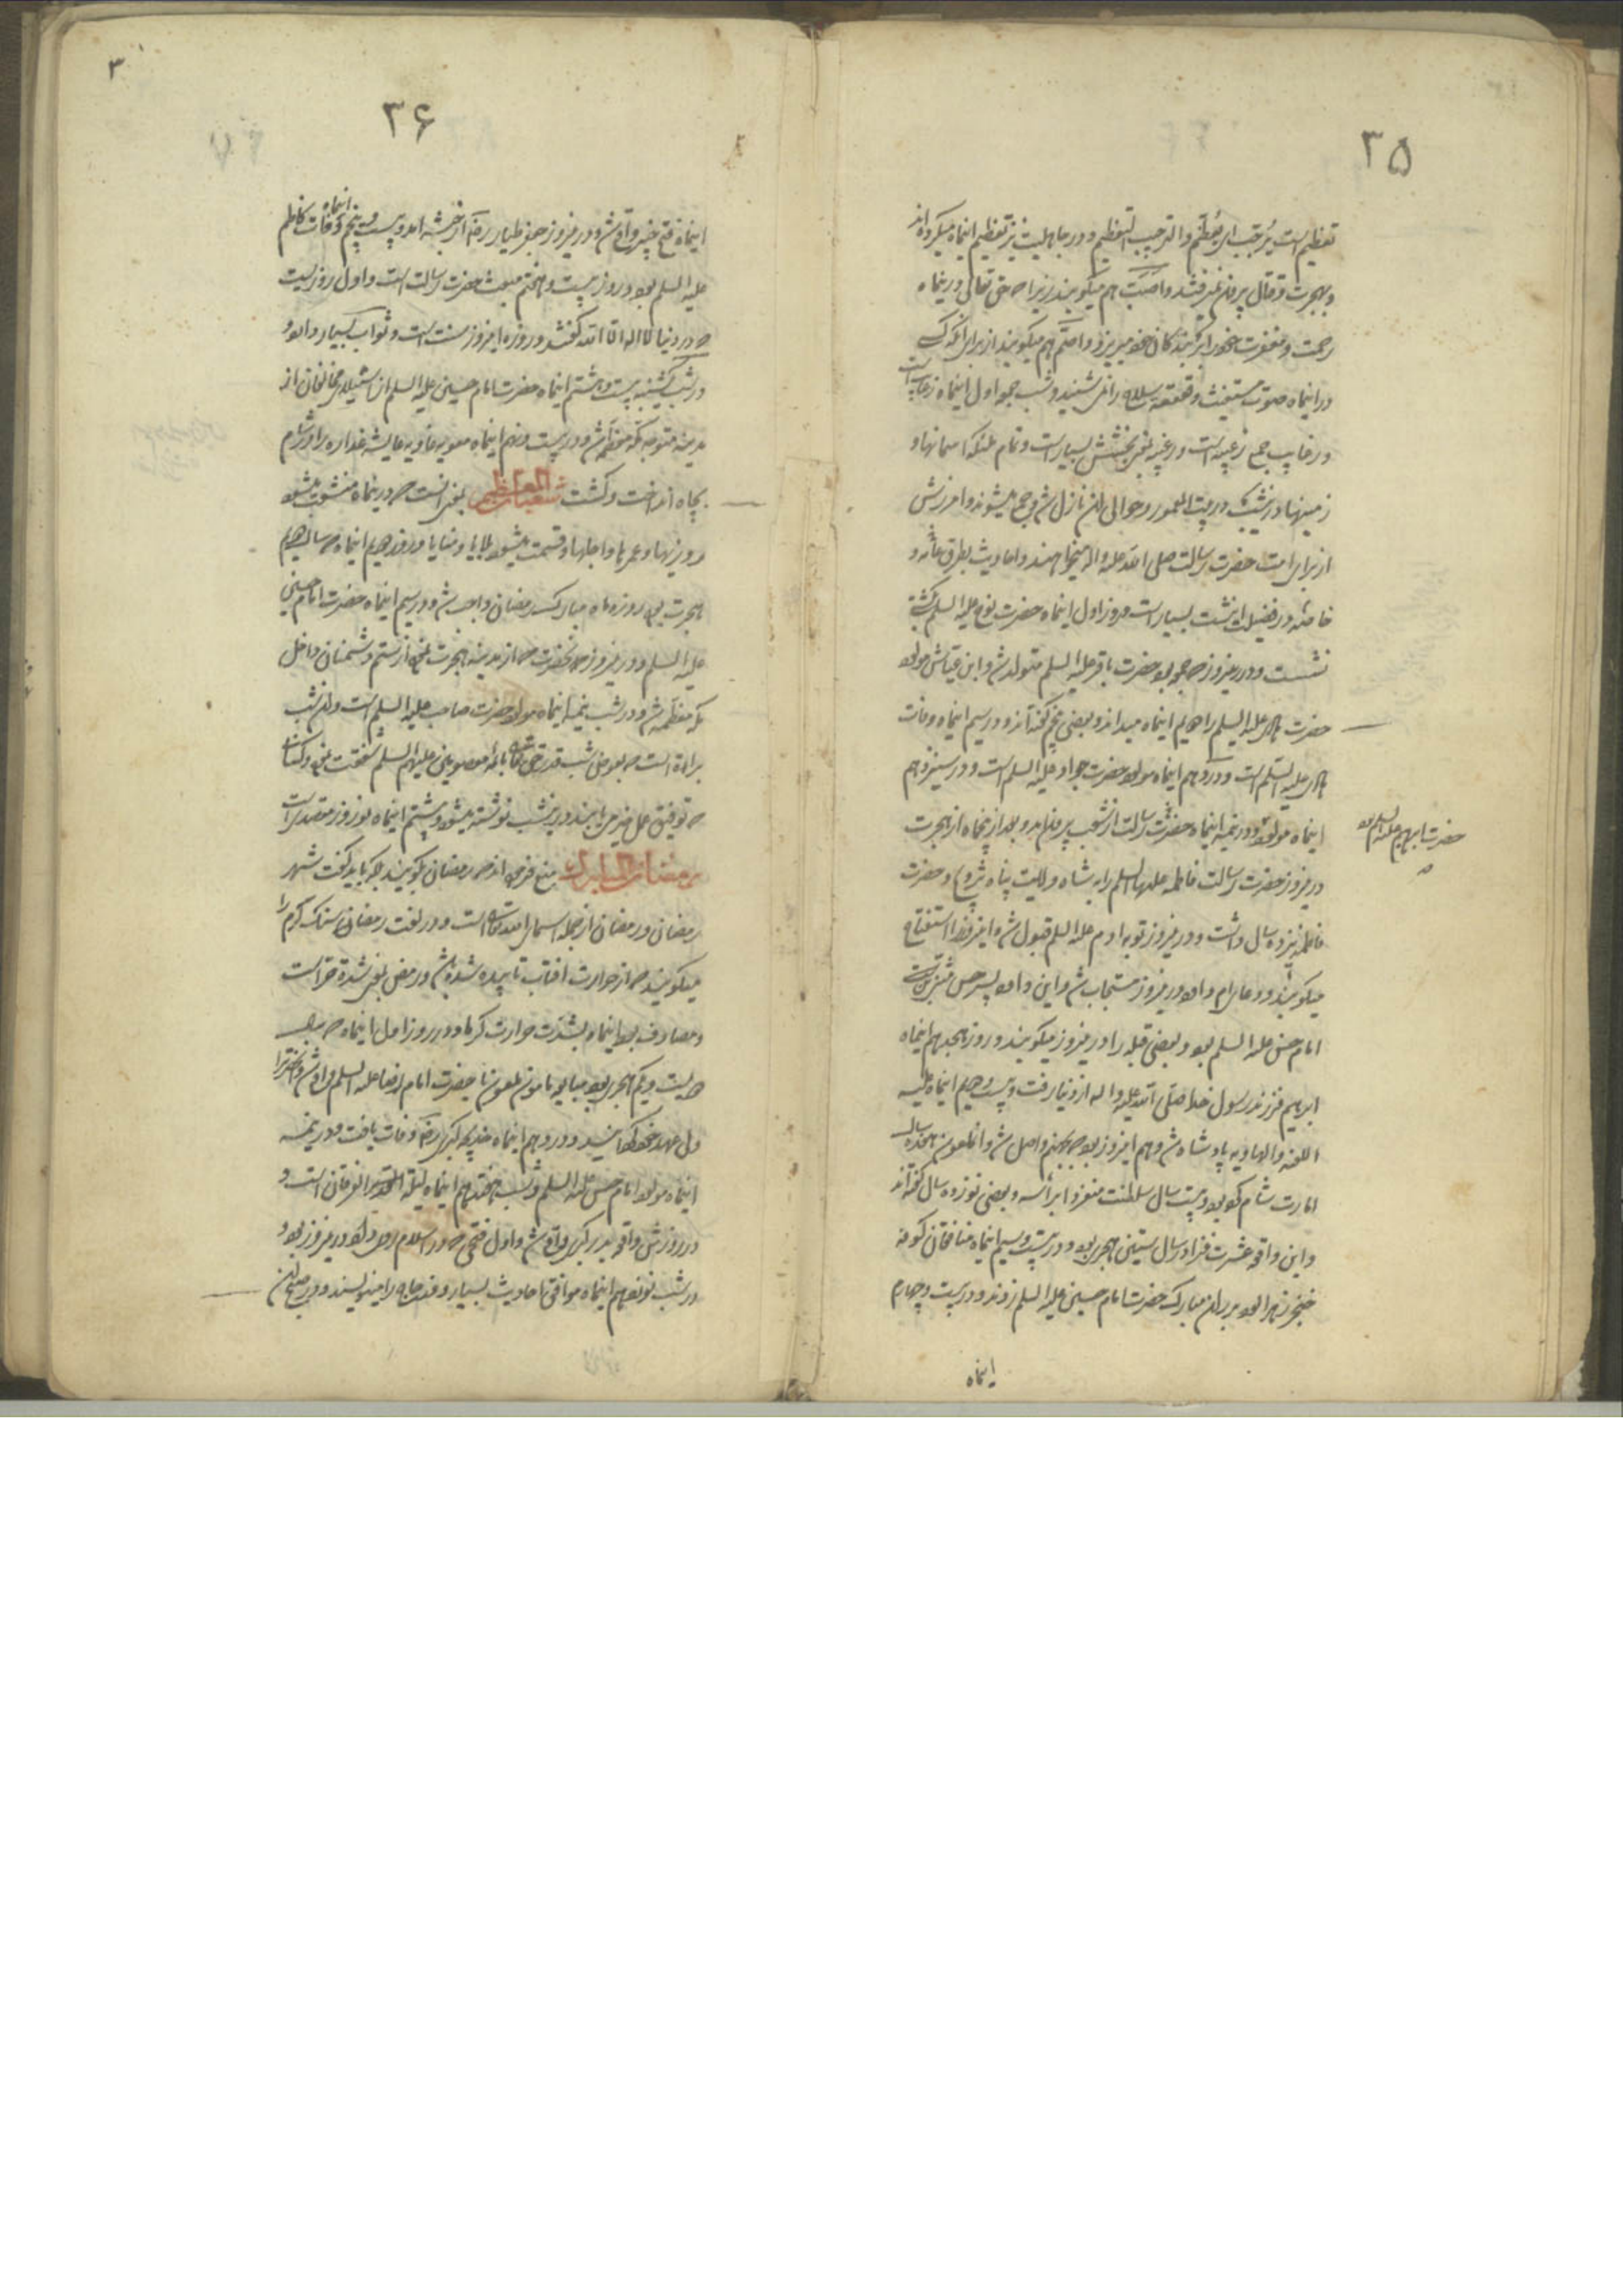 ۳۵
تعظیم است یُرَجّب ای یُعَظّم والترجیب التعظیم و در جاهلیت نیز تعظیم اینماه میکرده‌اند
و بهجرت و قتال بیرون نمیرفتند و اَصَبّ هم میکویند زیرا که حق تعالی در ینماه
رحمت و مغفرت خود بر بندکان خود میریزد و اَصَم هم میکویند از برای انکه
در اینماه صوت مستغیث و قعقعه سلاح را نمی شنیدند و شب جمعه اول اینماه رغایب است
و رغایب جمع رغیبه است و رغیبه بمعنی بخشش بسیار است و تمام ملئکه اسمانها و
زمینها در ینشب در بیت المعمور و حوالی ان نازل شده جمع میشوند و امرزش
از برای امت حضرت رسالت صلی الله علیه واله میخواهند و احادیث بطرق عامه و
خاصه در فضیلت اینشب بسیار است و روز اول اینماه حضرت نوح علیه السلم بکشتی
نشست و در ینروز که جمعه بود حضرت باقر علیه السلم متولد شد و ابن عیاش مولد
حضرت هادی علیه السلم را دویم اینماه میداند و بعضی پنجم کفته‌اند و در سیم اینماه وفات
هادی علیه السلم است و در دهم اینماه مولد حضرت جواد علیه السلم است و در سیزدهم
اینماه مولود و در نیمه اینماه حضرت رسالت از شعب بیرون امد و بعد از پنجماه از هجرت
حضرت ابرهیم علیه السلم بود
در ینروز حضرت رسالت فاطمه علیها السلم را به شاه ولایت پناه تزویج و حضرت
فاطمه سیزده سال داشت و در ینروز توبه ادم علیه السلم قبول شد و اینروز را استفتاح
میکویند و دعای ام داود در ینروز مستجاب شد و این داود پسر حسن مثنی
امام حسن علیه السلم بود و بعضی قبله را در ینروز میکویند و روز هجدهم اینماه
ابرهیم فرزند رسول خدا صلی الله علیه واله از دنیا رفت و بیست و دویم اینماه علیه
اللعنه والهاویه پادشاه شد و هم اینروز بود که بجهنم واصل شد و انملعون هجده سال
امارت شام کرد و بیست سال سلطنت منفردا براسه و بعضی نوزده سال کفته‌اند
و این واقعه حشرت فزا در سال ستین هجری بود و در بیست و سیم اینماه منافقان کوفه
خنجر زهر الود بر ران مبارک حضرت امام حسین علیه السلم زدند و در بیست و چهارم
اینماه
۳
۳۶
اینماه فتح خیبر واقع شد و در ینروز جعفر طیار رفته از حبشه امد و بیست و پنجم اینماه وفات کاظم
علیه السلم بود و روز بیست و هفتم مبعث حضرت رسالت است و اول روزیست
که در دنیا لا اله الا الله کفتند و روزه اینروز سنت است و ثواب بسیار دارد و
در شب یکشنبه بیست و هشتم اینماه حضرت امام حسین علیه السلم از استیلای مخالفان از
مدینه متوجه مکه معظمه شد و در بیست و نهم اینماه معویه هاویه عایشه غداره را در شام
بچاه انداخت و کشت شعبان المعظم بمعنی انست که در ینماه منشعب میشود
روزیها و عمرها و اجلها و قسمت میشود بلایا و منایا و روز دویم اینماه که سال دویم
هجرت بود روزه ماه مبارک رمضان واجب شد و در سیم اینماه حضرت امام حسین
علیه السلم و در ینروز هم انحضرت که از مدینه هجرت نمود از ستم دشمنان داخل
مکه معظمه شد و در شب نیمه اینماه مولد حضرت صاحب علیه السلم است و ان شب
براة است که بعوض شب قدر حق تعالی بائمه معصومین علیهم السلم شفقت نموده و کسانی
که توفیق عمل خیر می یابند در ینشب نوشته میشود و بیستم اینماه نوروز معتضدی است
رمضان المبارک منع فرموده‌اند که رمضان بکویند بلکه باید کفت شهر
رمضان و رمضان از جمله اسمای الله تعالی است و در لغت رمضان سنک کرم را
میکویند که از حرارت افتاب تابیده شده باشد و رمض بمعنی شدة حر است
و مصادف بود اینماه بشدت حرارت کرما و در روز اول اینماه که سال
دویست و یکم هجری بود مبایعه مامون ملعون با حضرت امام رضا علیه السلم واقع شد و انحضرت را
ولی عهد خود کردانید و در دهم اینماه خدیجه کبری رفته وفات یافت و در نیمه
اینماه مولد امام حسن علیه السلم و شب هفدهم اینماه لیلة الفرقان است و
در روزش واقعه بدر کبری واقع شد و اول فتحی که در اسلام روی داد در ینروز بود و
در شب نوزدهم اینماه موافق احادیث بسیار وفد حاج را مینویسند و در صبح ان